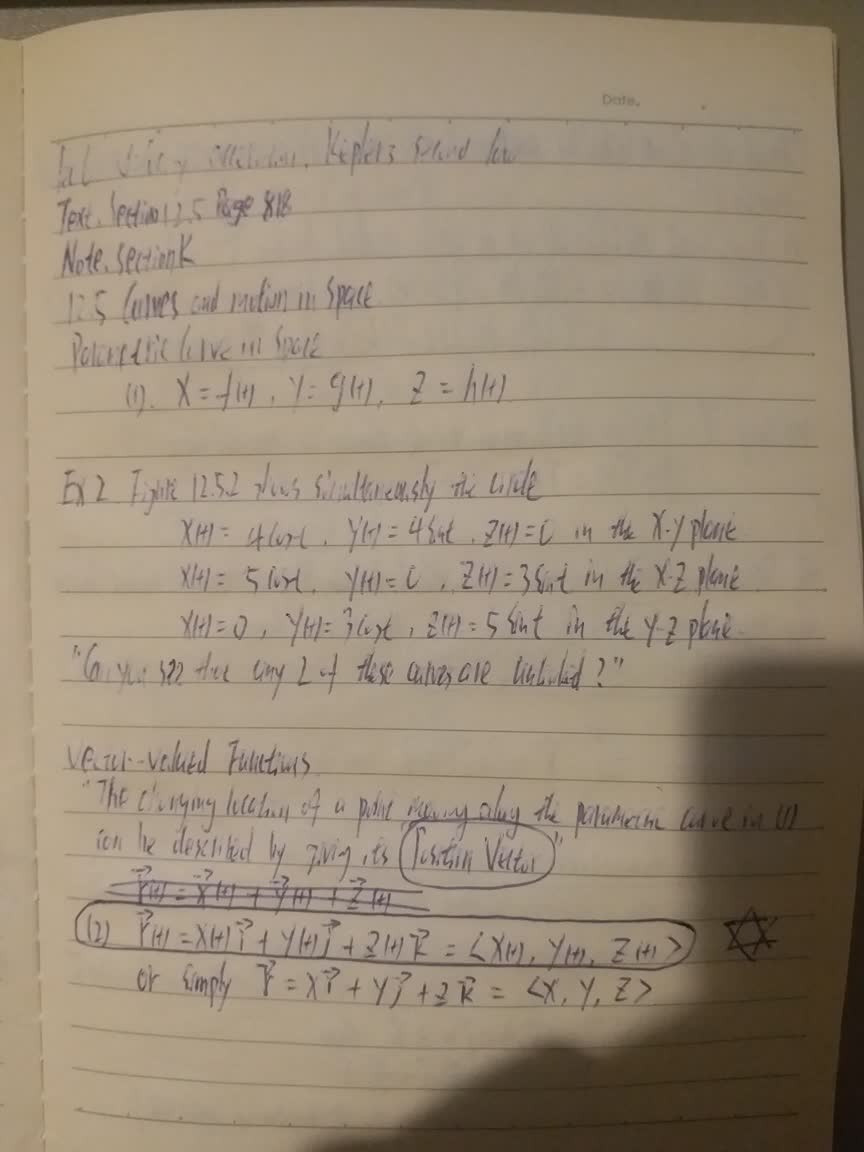 Date.
Kepler's Second law
Text. Section 12.5 Page 818
Note. Section K
12.5 Curves and motion in Space
Parametric Curve in Space
(1). X = f(t), Y = g(t), Z = h(t)
Ex 2 Figure 12.5.2 shows simultaneously the circle
X(t) = 4cost, Y(t) = 4Sint, Z(t) = 0 in the X-Y plane
X(t) = 5cost, Y(t) = 0, Z(t) = 3Sint in the X-Z plane
X(t) = 0, Y(t) = 3cost, Z(t) = 5Sint in the Y-Z plane
"Can you see that any 2 of these curves are"
Vector-valued Functions
"The changing location of a point moving along the parametric curve in (1)
can be described by giving its Position Vector"
r⃗(t) = x⃗(t) + y⃗(t) + z⃗(t)
(2) r⃗(t) = X(t)i⃗ + Y(t)j⃗ + Z(t)k⃗ = <X(t), Y(t), Z(t)>
or simply r⃗ = Xi⃗ + Yj⃗ + Zk⃗ = <X, Y, Z>